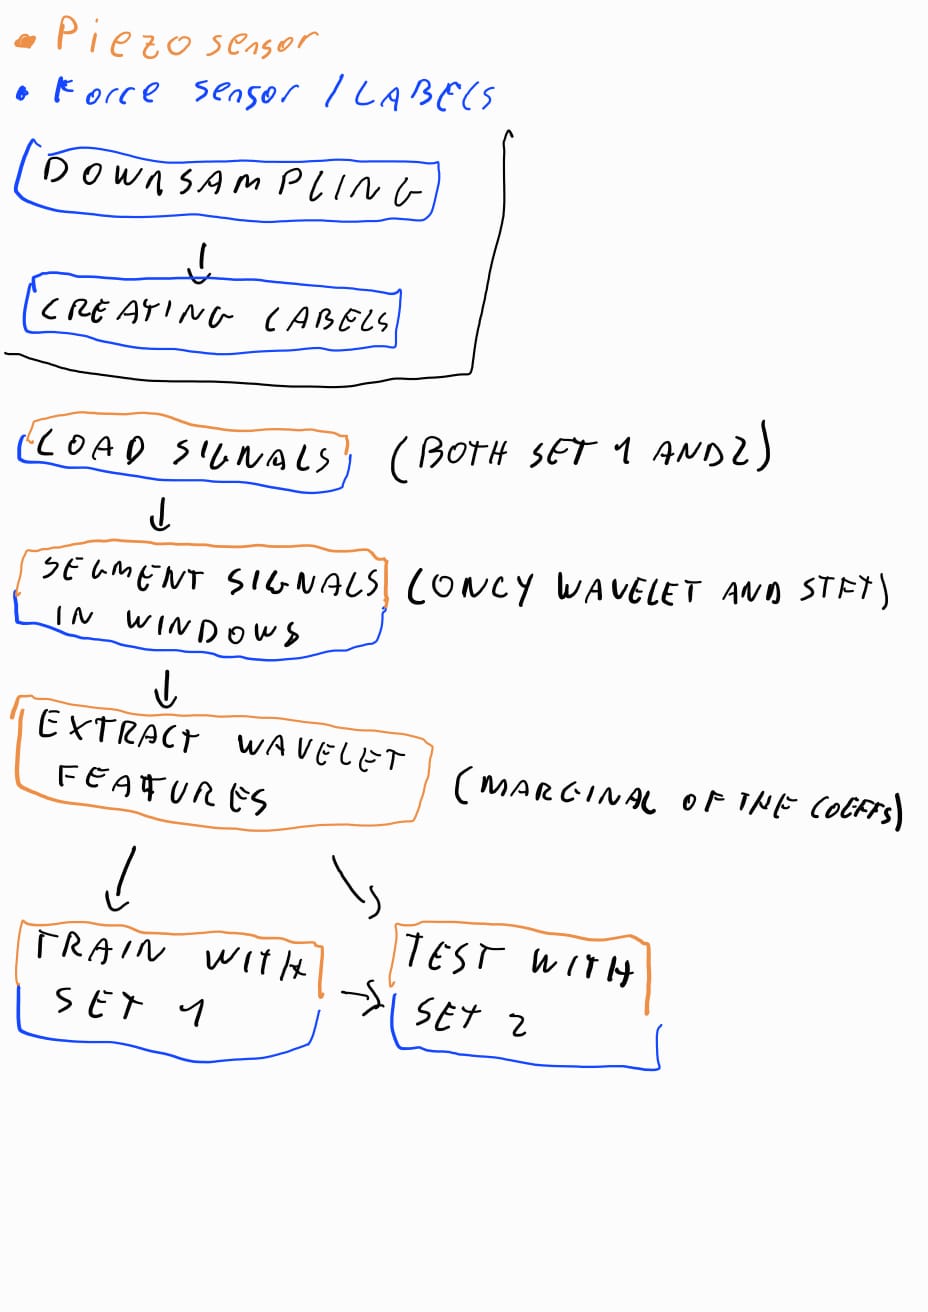 Piezo sensor
Force sensor / LABELS
DOWNSAMPLING
CREATING LABELS
LOAD SIGNALS (BOTH SET 1 AND 2)
SEGMENT SIGNALS (ONLY WAVELET AND STFT)
IN WINDOWS
EXTRACT WAVELET
FEATURES (MARGINAL OF THE COEFFS)
TRAIN WITH
SET 1
TEST WITH
SET 2